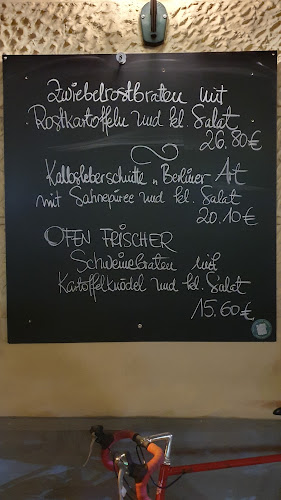 Zwiebelrostbraten mit
Rostkartoffeln und kl. Salat
26.80€
Kalbsleberschnitte "Berliner Art
mit Sahnepüree und kl. Salat
20.10€
OFEN FRISCHER
Schweinebraten mit
Kartoffelknödel und kl. Salat
15.60€